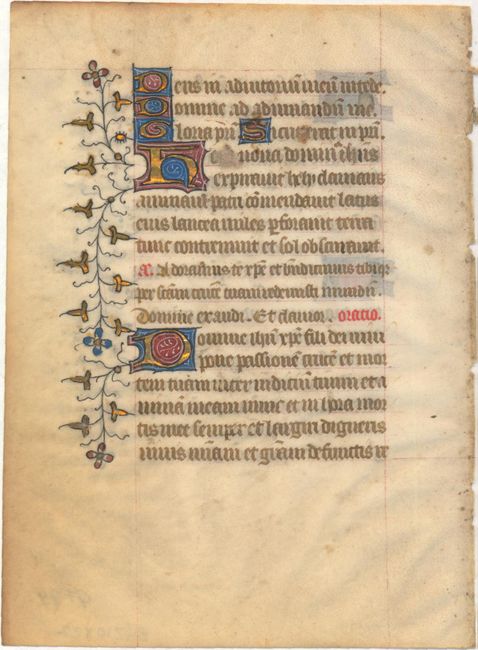 Deus in adiutoriũ meũ intẽde.
Domine ad adiuuandũ me.
Gloria pr̃i Sicut erat in pri̾.
Hora nona dominꝰ ihũs
expirauit hely clamans
animam patri cõmendauit latus
eius lancea miles ꝑforauit terra
tunc contremuit et sol obscurauit.
a᷒. Adoramus te xp̃e et bñdicimus tibi qꝛ
per sc̃am crucẽ tuam redemisti mundũ.
Domine exaudi. Et clamor. oratio.
Domine ihũ xp̃e fili dei uiui
pone passionẽ crucẽ et mor
tem tuam inter iudiciũ tuum et a
nimam meam nunc et in hora mor
tis mee semper et largiri digneris
uiuis miãm et grãm defunctis re